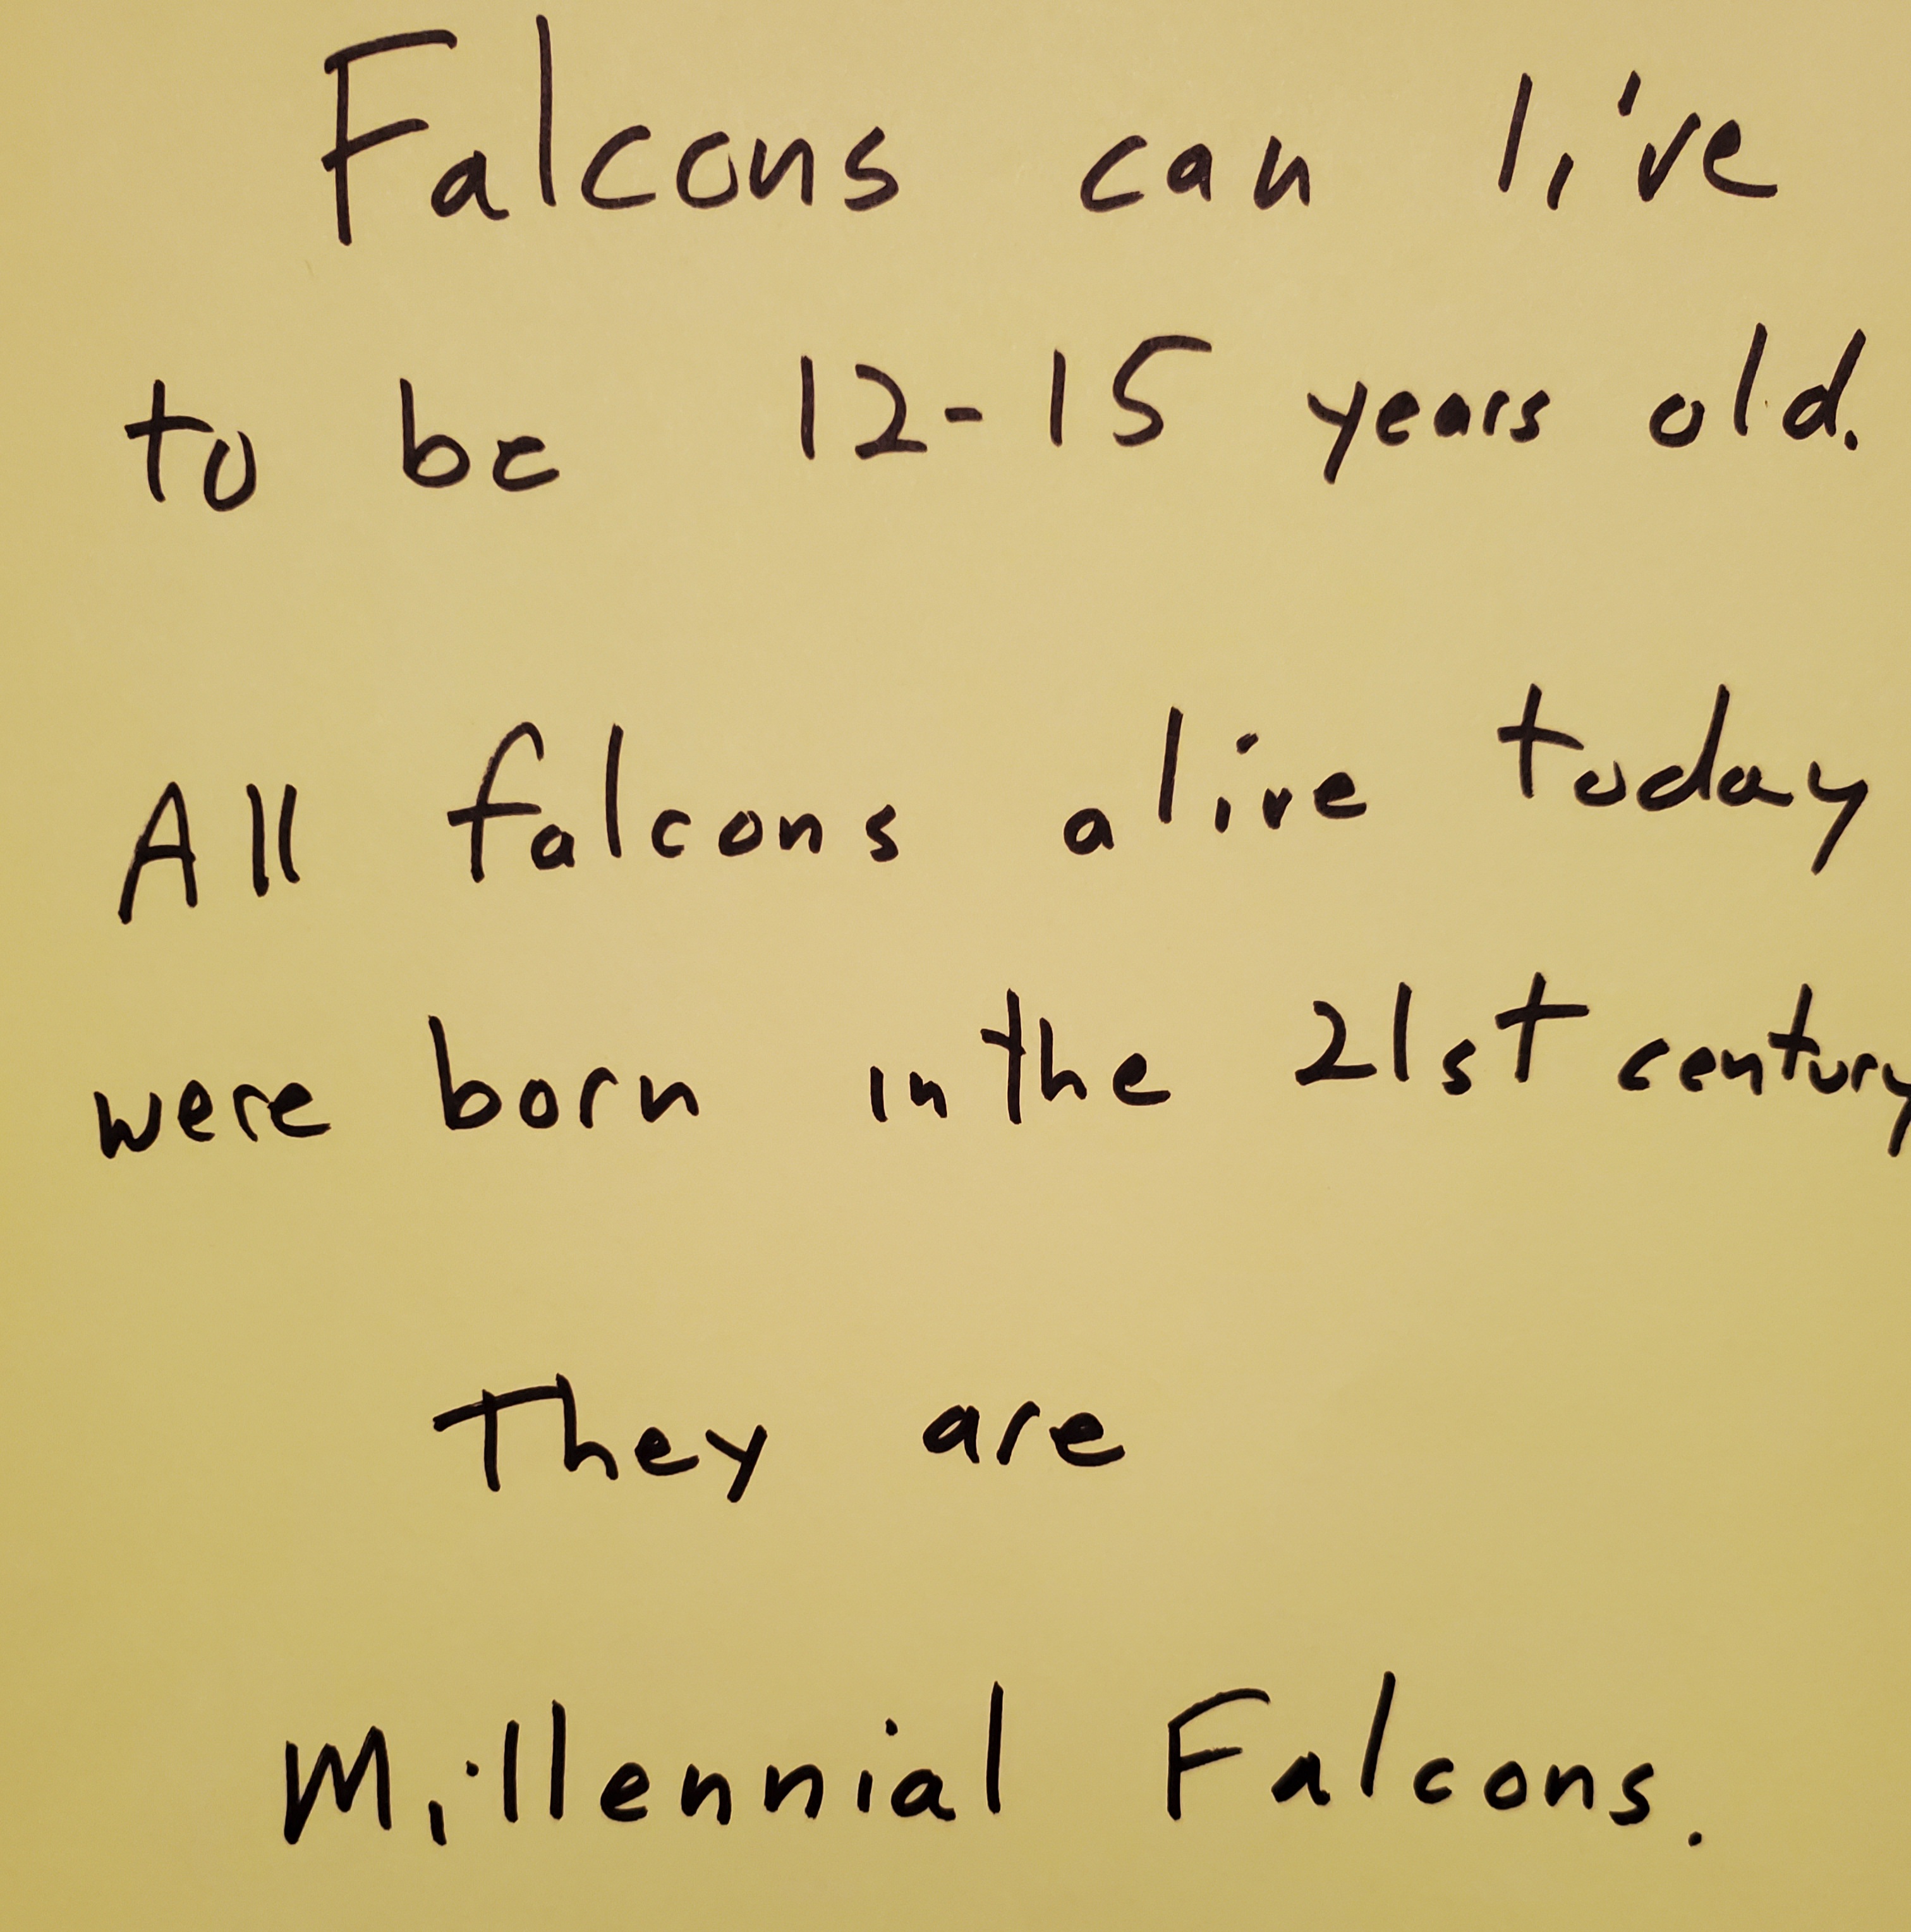 Falcons can live
to be 12-15 years old.
All falcons alive today
were born in the 21st century
They are
Millennial Falcons.